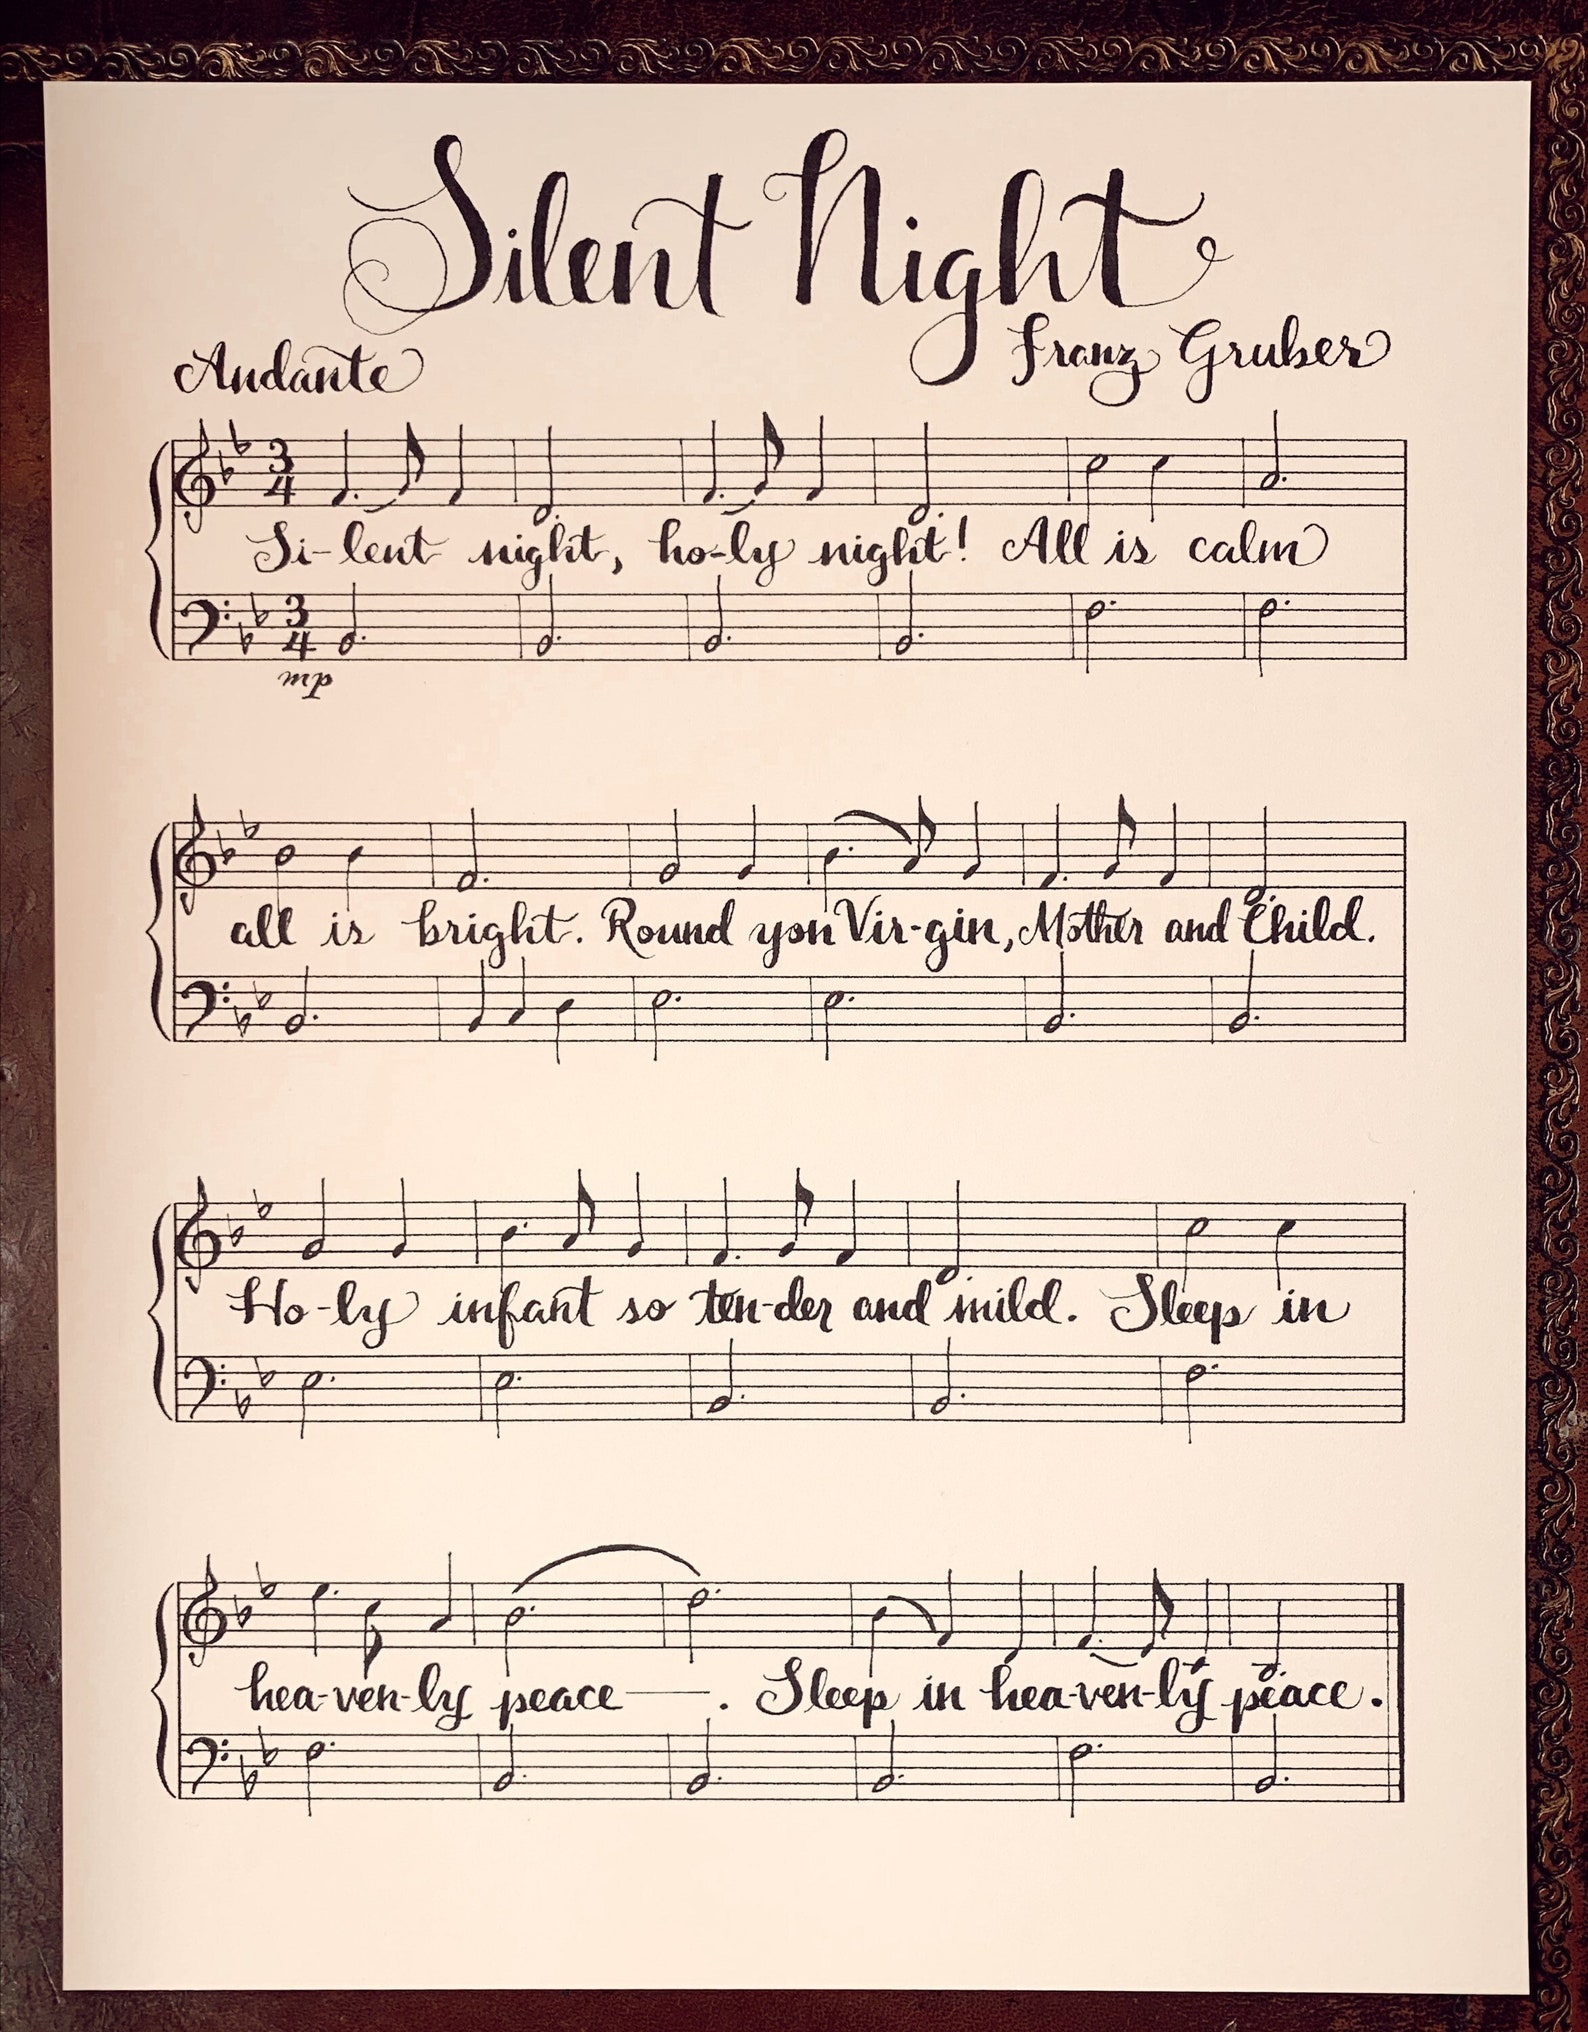 Silent Night
Andante
Franz Gruber
3 4
Si-lent night, ho-ly night! All is calm
3 4
mp
all is bright. Round yon Vir-gin, Mother and Child.
Ho-ly infant so ten-der and mild. Sleep in
hea-ven-ly peace —. Sleep in hea-ven-ly peace.